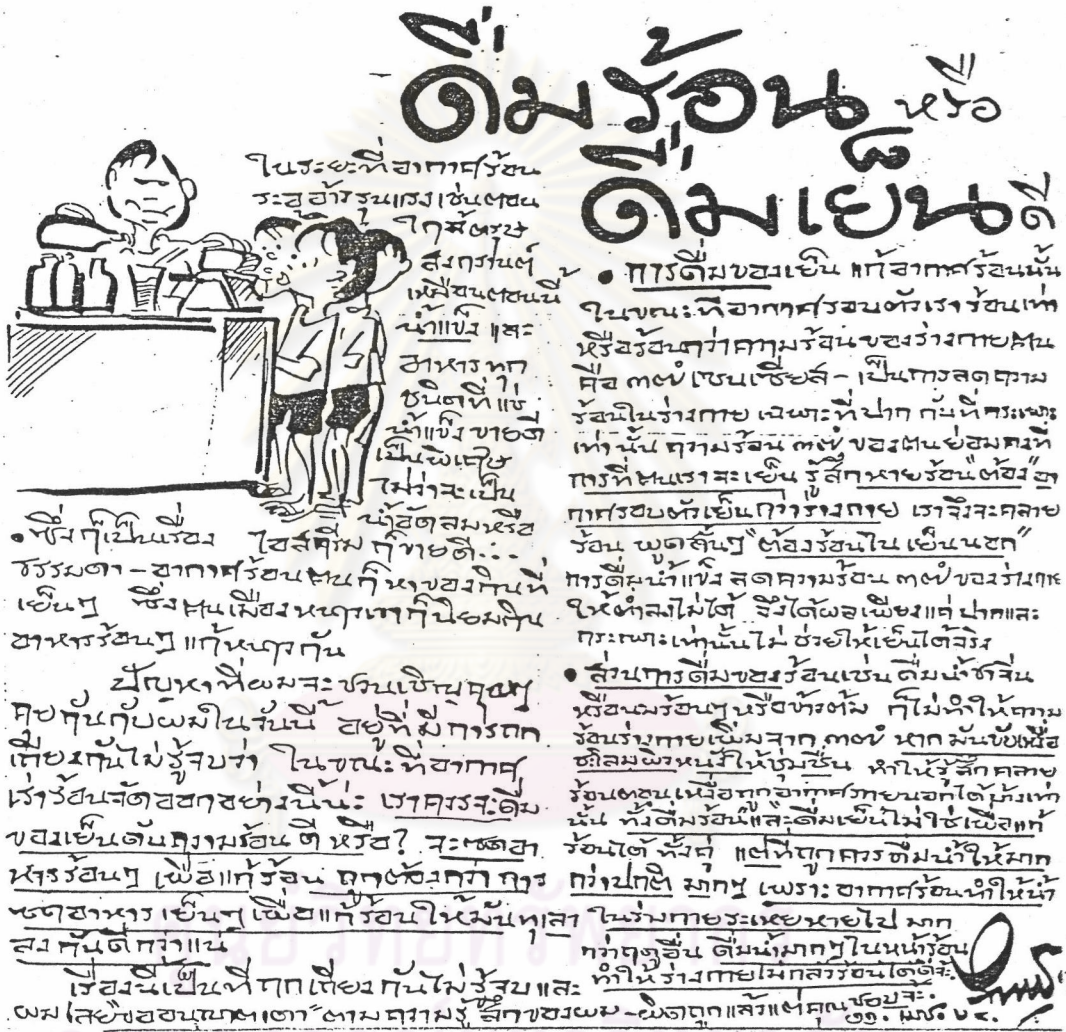 ดื่มร้อน หรือ
ดื่มเย็น ดี
ในระยะที่อากาศร้อน
ระอุอ้าวรุนแรงเช่นตอน
ใกล้ตรุษ
สงกรานต์
เหมือนตอนนี้
น้ำแข็ง และ
อาหารทุก
ชนิดที่แช่
น้ำแข็ง ขายดี
เป็นพิเศษ
ไม่ว่าจะเป็น
น้ำอัดลมหรือ
ไอสครีม ก็ขายดี...
• ซึ่งก็เป็นเรื่อง
ธรรมดา - อากาศร้อนคนก็หาของกินที่
เย็นๆ ซึ่งคนเมืองหนาวเขาก็นิยมกิน
อาหารร้อนๆ แก้หนาวกัน
ปัญหาที่ผมจะชวนเชิญคุณๆ
คุยกันกับผมในวันนี้ อยู่ที่มีการถก
เถียงกันไม่รู้จบว่า ในขณะที่อากาศ
เราร้อนจัดออกอย่างนี้น่ะ เราควรจะดื่ม
ของเย็นดับความร้อน ดี หรือ? จะซดอา
หารร้อนๆ เพื่อแก้ร้อน ถูกต้องกว่า การ
ซดอาหารเย็นๆ เพื่อแก้ร้อนให้มันทุเลา
ลง กันดีกว่าแน่
เรื่องนี้เป็นที่ถกเถียงกันไม่รู้จบ และ
ผมเลย "ขออนุญาตเดา" ตามความรู้สึกของผม - ผิดถูกแล้วแต่คุณ
• การดื่มของเย็น แก้อากาศร้อนนั้น
ในขณะที่อากาศรอบตัวเราร้อนเท่า
หรือร้อนกว่าความร้อนของร่างกายคน
คือ ๓๗ํ เซนเซียส - เป็นการลดความ
ร้อนในร่างกาย เฉพาะที่ปาก กับที่กระเพาะ
เท่านั้น ความร้อน ๓๗ํ ของคนย่อมคงที่
การที่คนเราจะเย็น รู้สึกหายร้อน "ต้อง" อา
กาศรอบตัวเย็นกว่าร่างกาย เราจึงจะคลาย
ร้อน พูดสั้นๆ "ต้องร้อนใน เย็นนอก"
การดื่มน้ำแข็ง ลดความร้อน ๓๗ํ ของร่างกาย
ให้ต่ำลงไม่ได้ จึงได้ผลเพียงแค่ ปากและ
กระเพาะเท่านั้นไม่ ช่วยให้เย็นได้จริง
• ส่วนการดื่มของร้อนเช่น ดื่มน้ำชาจีน
หรือนมร้อนๆ หรือข้าวต้ม ก็ไม่ทำให้ความ
ร้อนร่างกายเพิ่มจาก ๓๗ํ หาก มันขับเหงื่อ
ชะโลมผิวหนังให้ชุ่มชื้น ทำให้รู้สึกคลาย
ร้อนตอนเหงื่อถูกอากาศภายนอกได้บ้างเท่า
นั้น ทั้งดื่มร้อน "และ" ดื่มเย็นไม่ใช่เพื่อแก้
ร้อนได้ ทั้งคู่ แต่ที่ถูกควรดื่มน้ำให้มาก
กว่าปกติ มากๆ เพราะ อากาศร้อนทำให้น้ำ
ในร่างกายระเหยหายไป มาก
กว่าฤดูอื่น ดื่มน้ำมากๆ ในหน้าร้อน
ทำให้ ร่างกายไม่กลัวร้อนได้ดีจ้ะ
ชอบจ้ะ.
๒๑. เมษ. ๒๔.